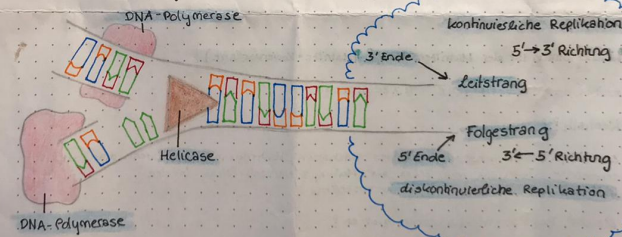 DNA-Polymerase
kontinuierliche Replikation
5'→3' Richtung
3' Ende
Leitstrang
Helicase
Folgestrang
5' Ende
3'← 5' Richtung
diskontinuierliche Replikation
DNA-Polymerase